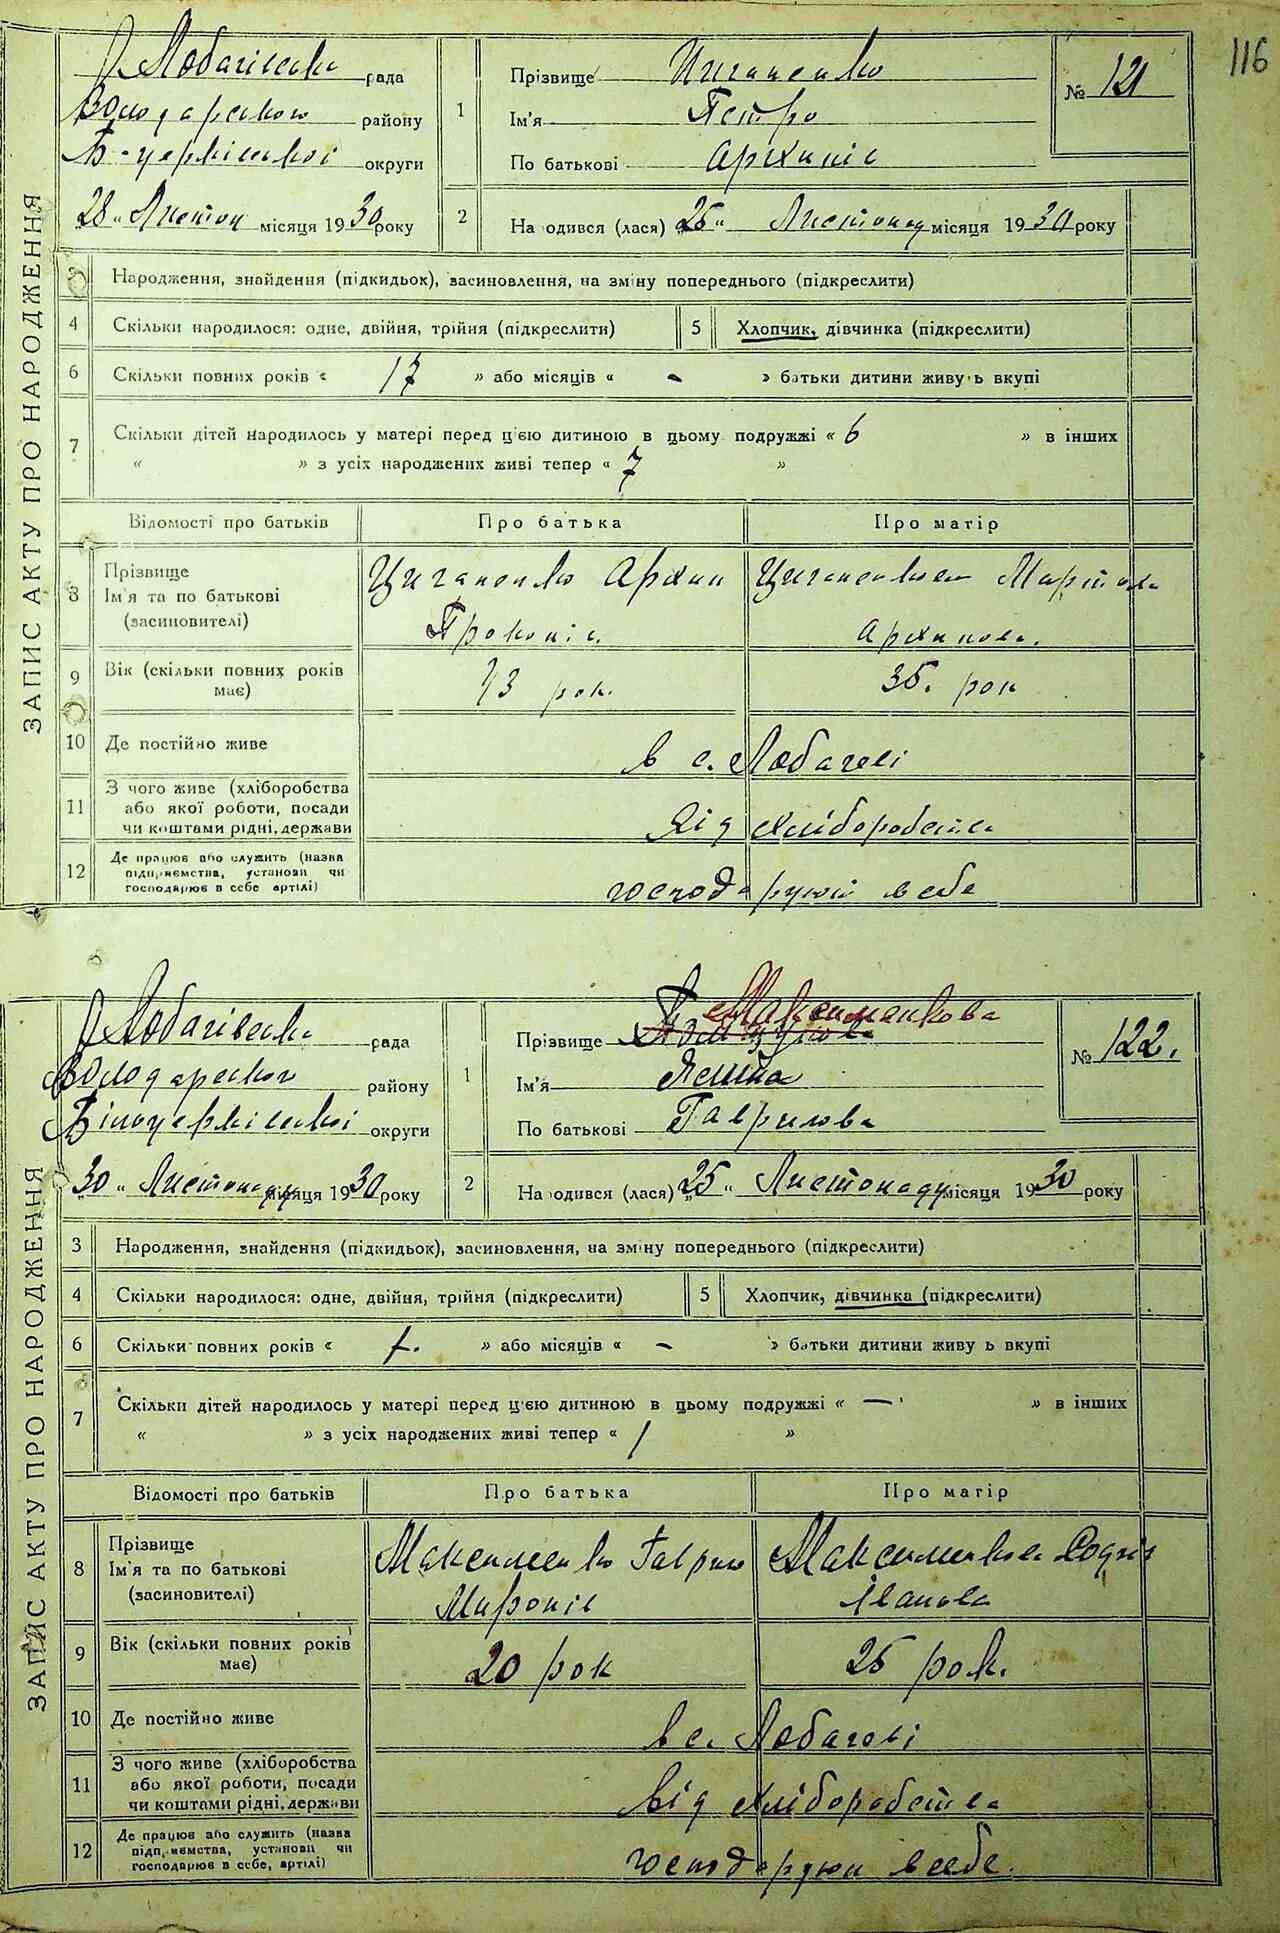 116
ЗАПИС АКТУ ПРО НАРОДЖЕННЯ
Лобачівська рада
Володарського району
Б-церківської округи
28 " Листоп місяця 1930 року
1 Прізвище Циганенко
Ім'я Петро
По батькові Архипів
№ 121
2 На одився (лася) 25 " Листопад місяця 1930 року
3 Народження, знайдення (підкидьок), засиновлення, на зміну попереднього (підкреслити)
4 Скільки народилося: одне, двійня, трійня (підкреслити) 5 Хлопчик, дівчинка (підкреслити)
6 Скільки повних років « 17 » або місяців « - » батьки дитини живу ь вкупі
7 Скільки дітей народилось у матері перед ц'єю дитиною в цьому подружжі « 6 » в інших
« » з усіх народжених живі тепер « 7 »
Відомості про батьків Про батька Про матір
8 Прізвище
Ім'я та по батькові
(засиновителі)
Циганенко Архип
Прокопів
Циганенкова
Архипова.
9 Вік (скільки повних років має) 43 рок. 35. рок
10 Де постійно живе в с. Лобачеві
11 З чого живе (хліборобства
або якої роботи, посади
чи коштами рідні, держави
Від хліборобства
12 Де працює або служить (назва
підприємства, установи чи
господарює в себе артілі)
господарюют в себе
ЗАПИС АКТУ ПРО НАРОДЖЕННЯ
Лобачівська рада
Володарского району
Білоцерківської округи
30 " Листопаду місяця 1930 року
1 Прізвище Максименкова
Ім'я
По батькові Гаврилова
№ 122.
2 На одився (лася) 25 " Листопаду місяця 1930 року
3 Народження, знайдення (підкидьок), засиновлення, на зміну попереднього (підкреслити)
4 Скільки народилося: одне, двійня, трійня (підкреслити) 5 Хлопчик, дівчинка (підкреслити)
6 Скільки повних років « 1. » або місяців « - » батьки дитини живу ь вкупі
7 Скільки дітей народилось у матері перед ц'єю дитиною в цьому подружжі « — » в інших
« » з усіх народжених живі тепер « 1 »
Відомості про батьків Про батька Про матір
8 Прізвище
Ім'я та по батькові
(засиновителі)
Максименко Гаврило
Миронів
Максименкова
Іванова
9 Вік (скільки повних років має) 20 рок 25 рок.
10 Де постійно живе в с. Лобачеві
11 З чого живе (хліборобства
або якої роботи, посади
чи коштами рідні, держави
Від хліборобства
12 Де працює або служить (назва
підприємства, установи чи
господарює в себе, артілі)
господарюют в себе.